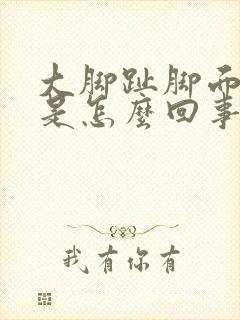 大脚趾脚面
是怎麼回事
我有你有